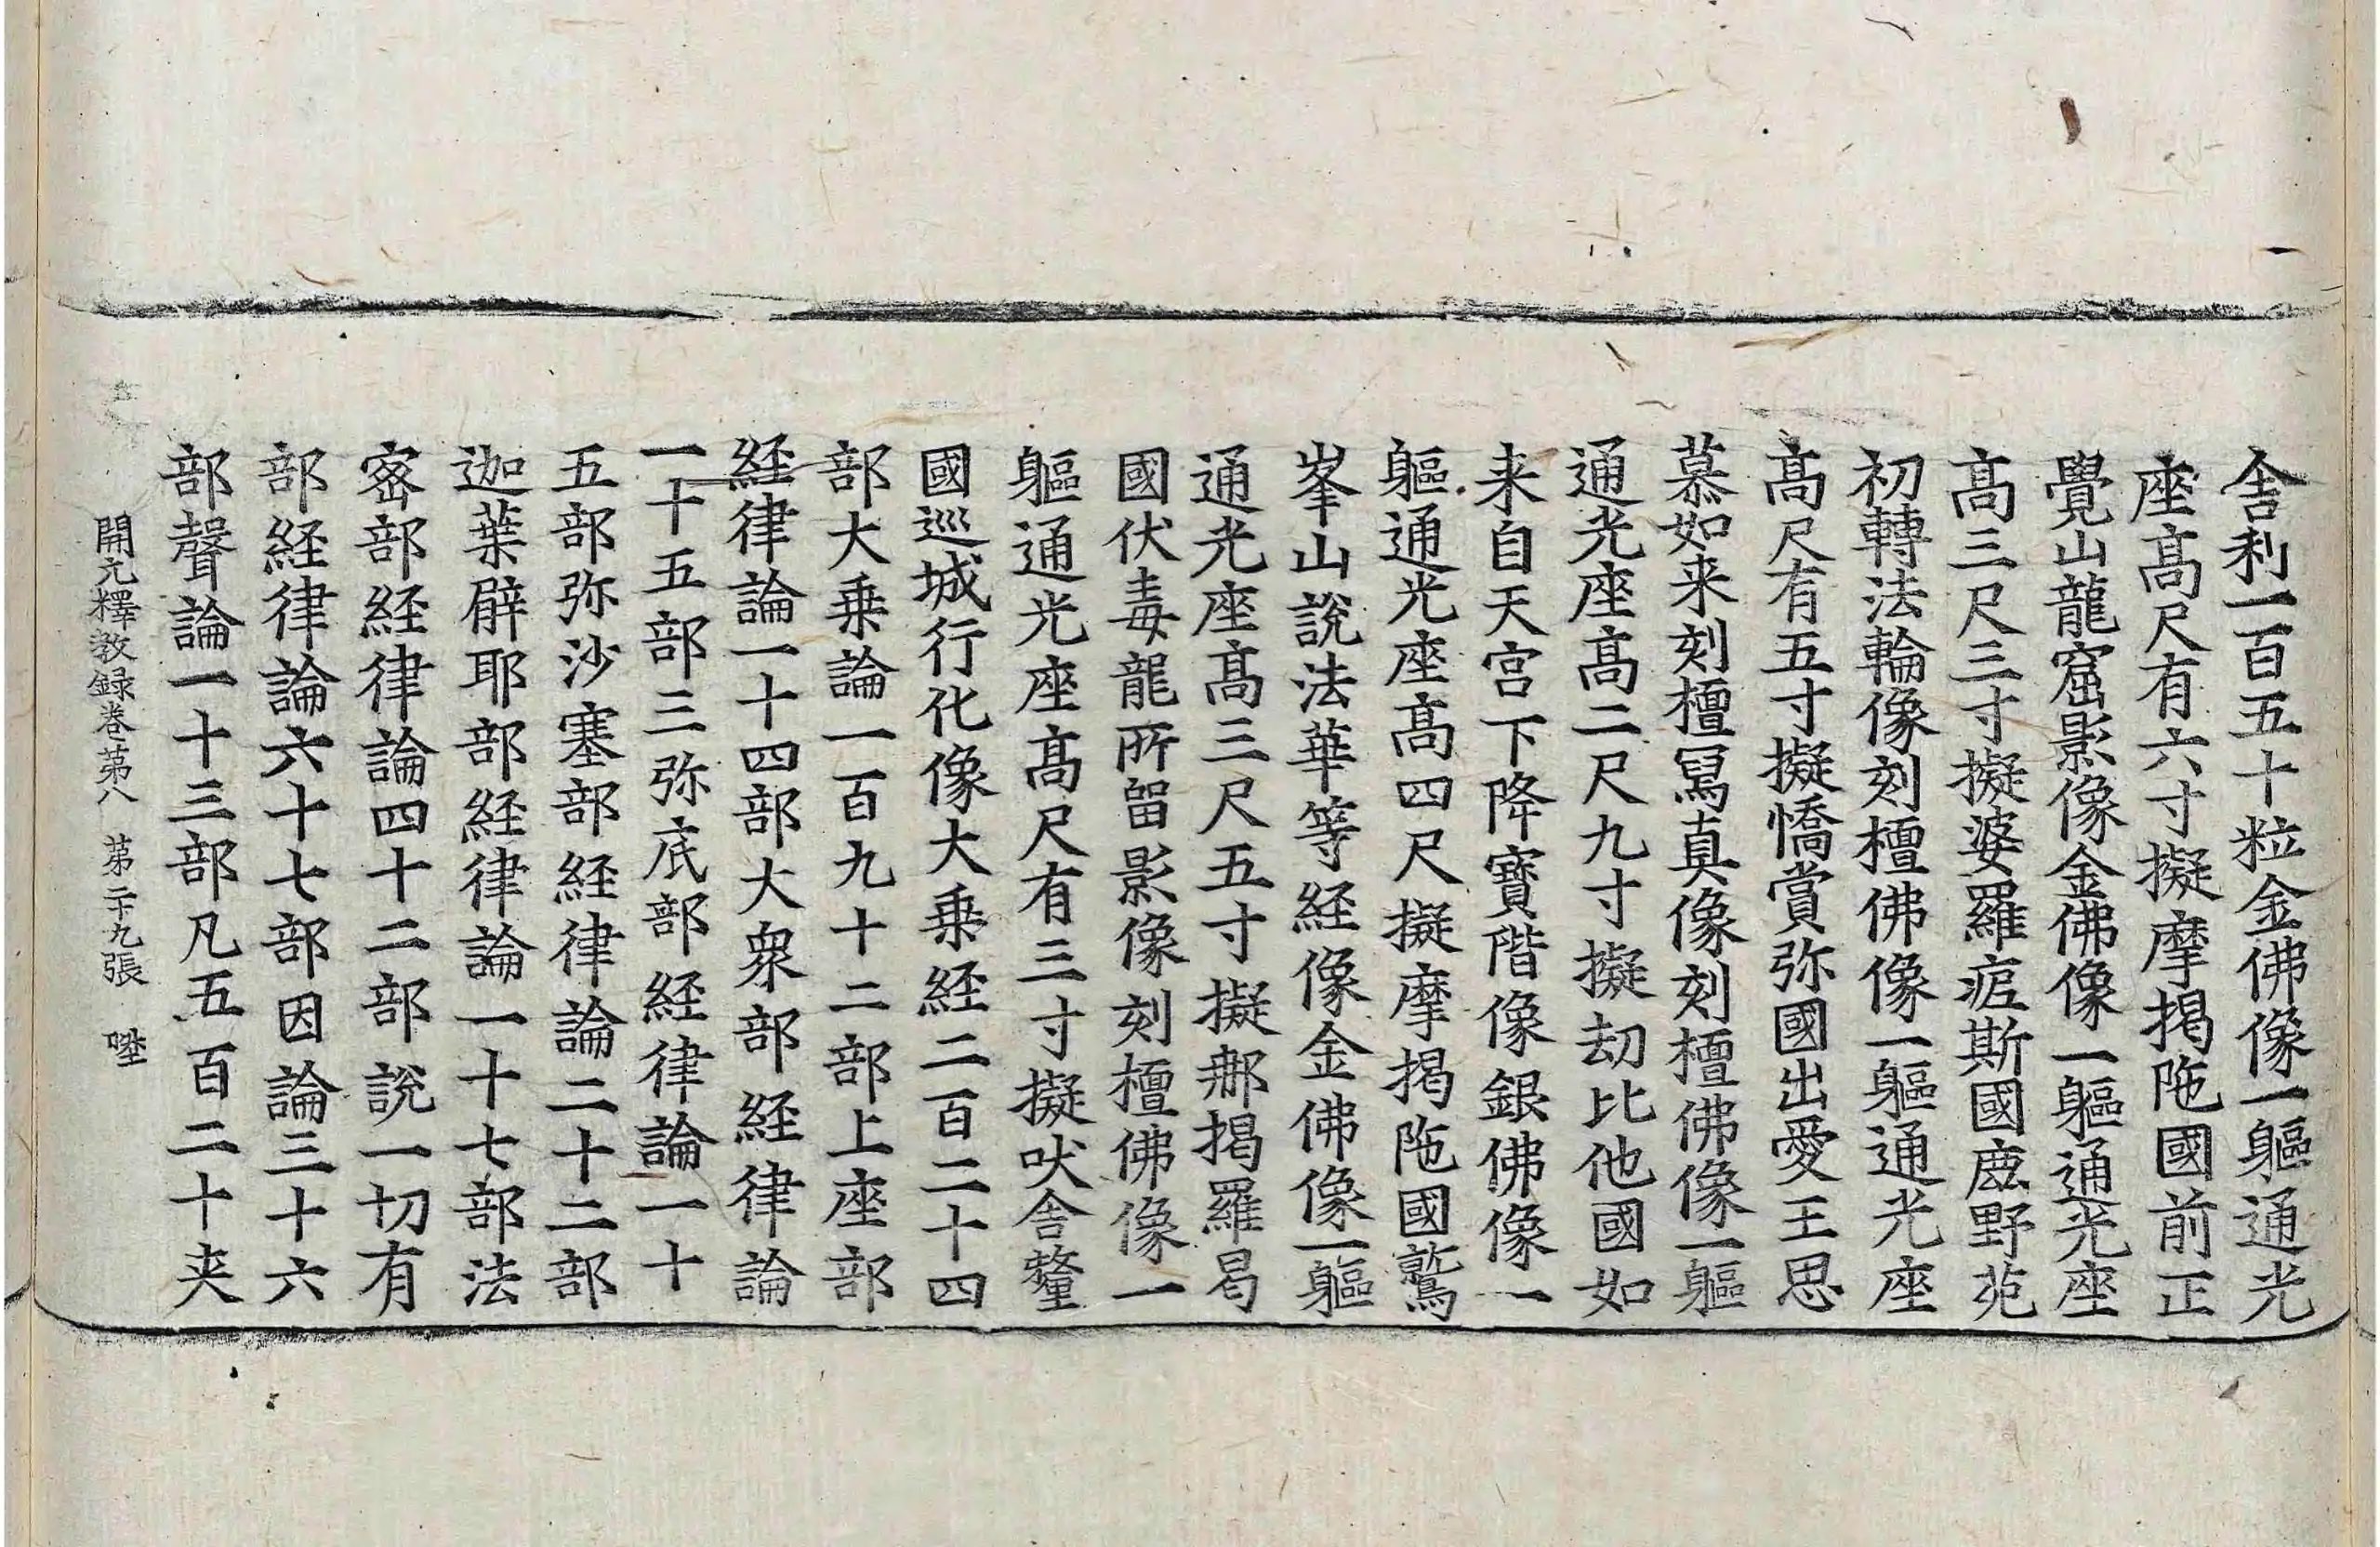 舎利一百五十粒金佛像一軀通光
座髙尺有六寸擬摩揭陁國前正
覺山龍窟影像金佛像一軀通光座
髙三尺三寸擬婆羅痆斯國鹿野苑
初轉法輪像刻檀佛像一軀通光座
髙尺有五寸擬憍賞弥國出愛王思
慕如来刻檀冩真像刻檀佛像一軀
通光座髙二尺九寸擬劫比他國如
来自天宮下降寶階像銀佛像一
軀通光座髙四尺擬摩揭陁國鷲
峯山說法華等経像金佛像一軀
通光座髙三尺五寸擬那揭羅曷
國伏毒龍所留影像刻檀佛像一
軀通光座髙尺有三寸擬吠舎釐
國巡城行化像大乗経二百二十四
部大乗論一百九十二部上座部
経律論一十四部大衆部経律論
一十五部三弥底部経律論一十
五部弥沙塞部経律論二十二部
迦葉臂耶部経律論一十七部法
宻部経律論四十二部說一切有
部経律論六十七部因論三十六
部聲論一十三部凡五百二十夾
開元釋教録卷苐八 苐二十九張